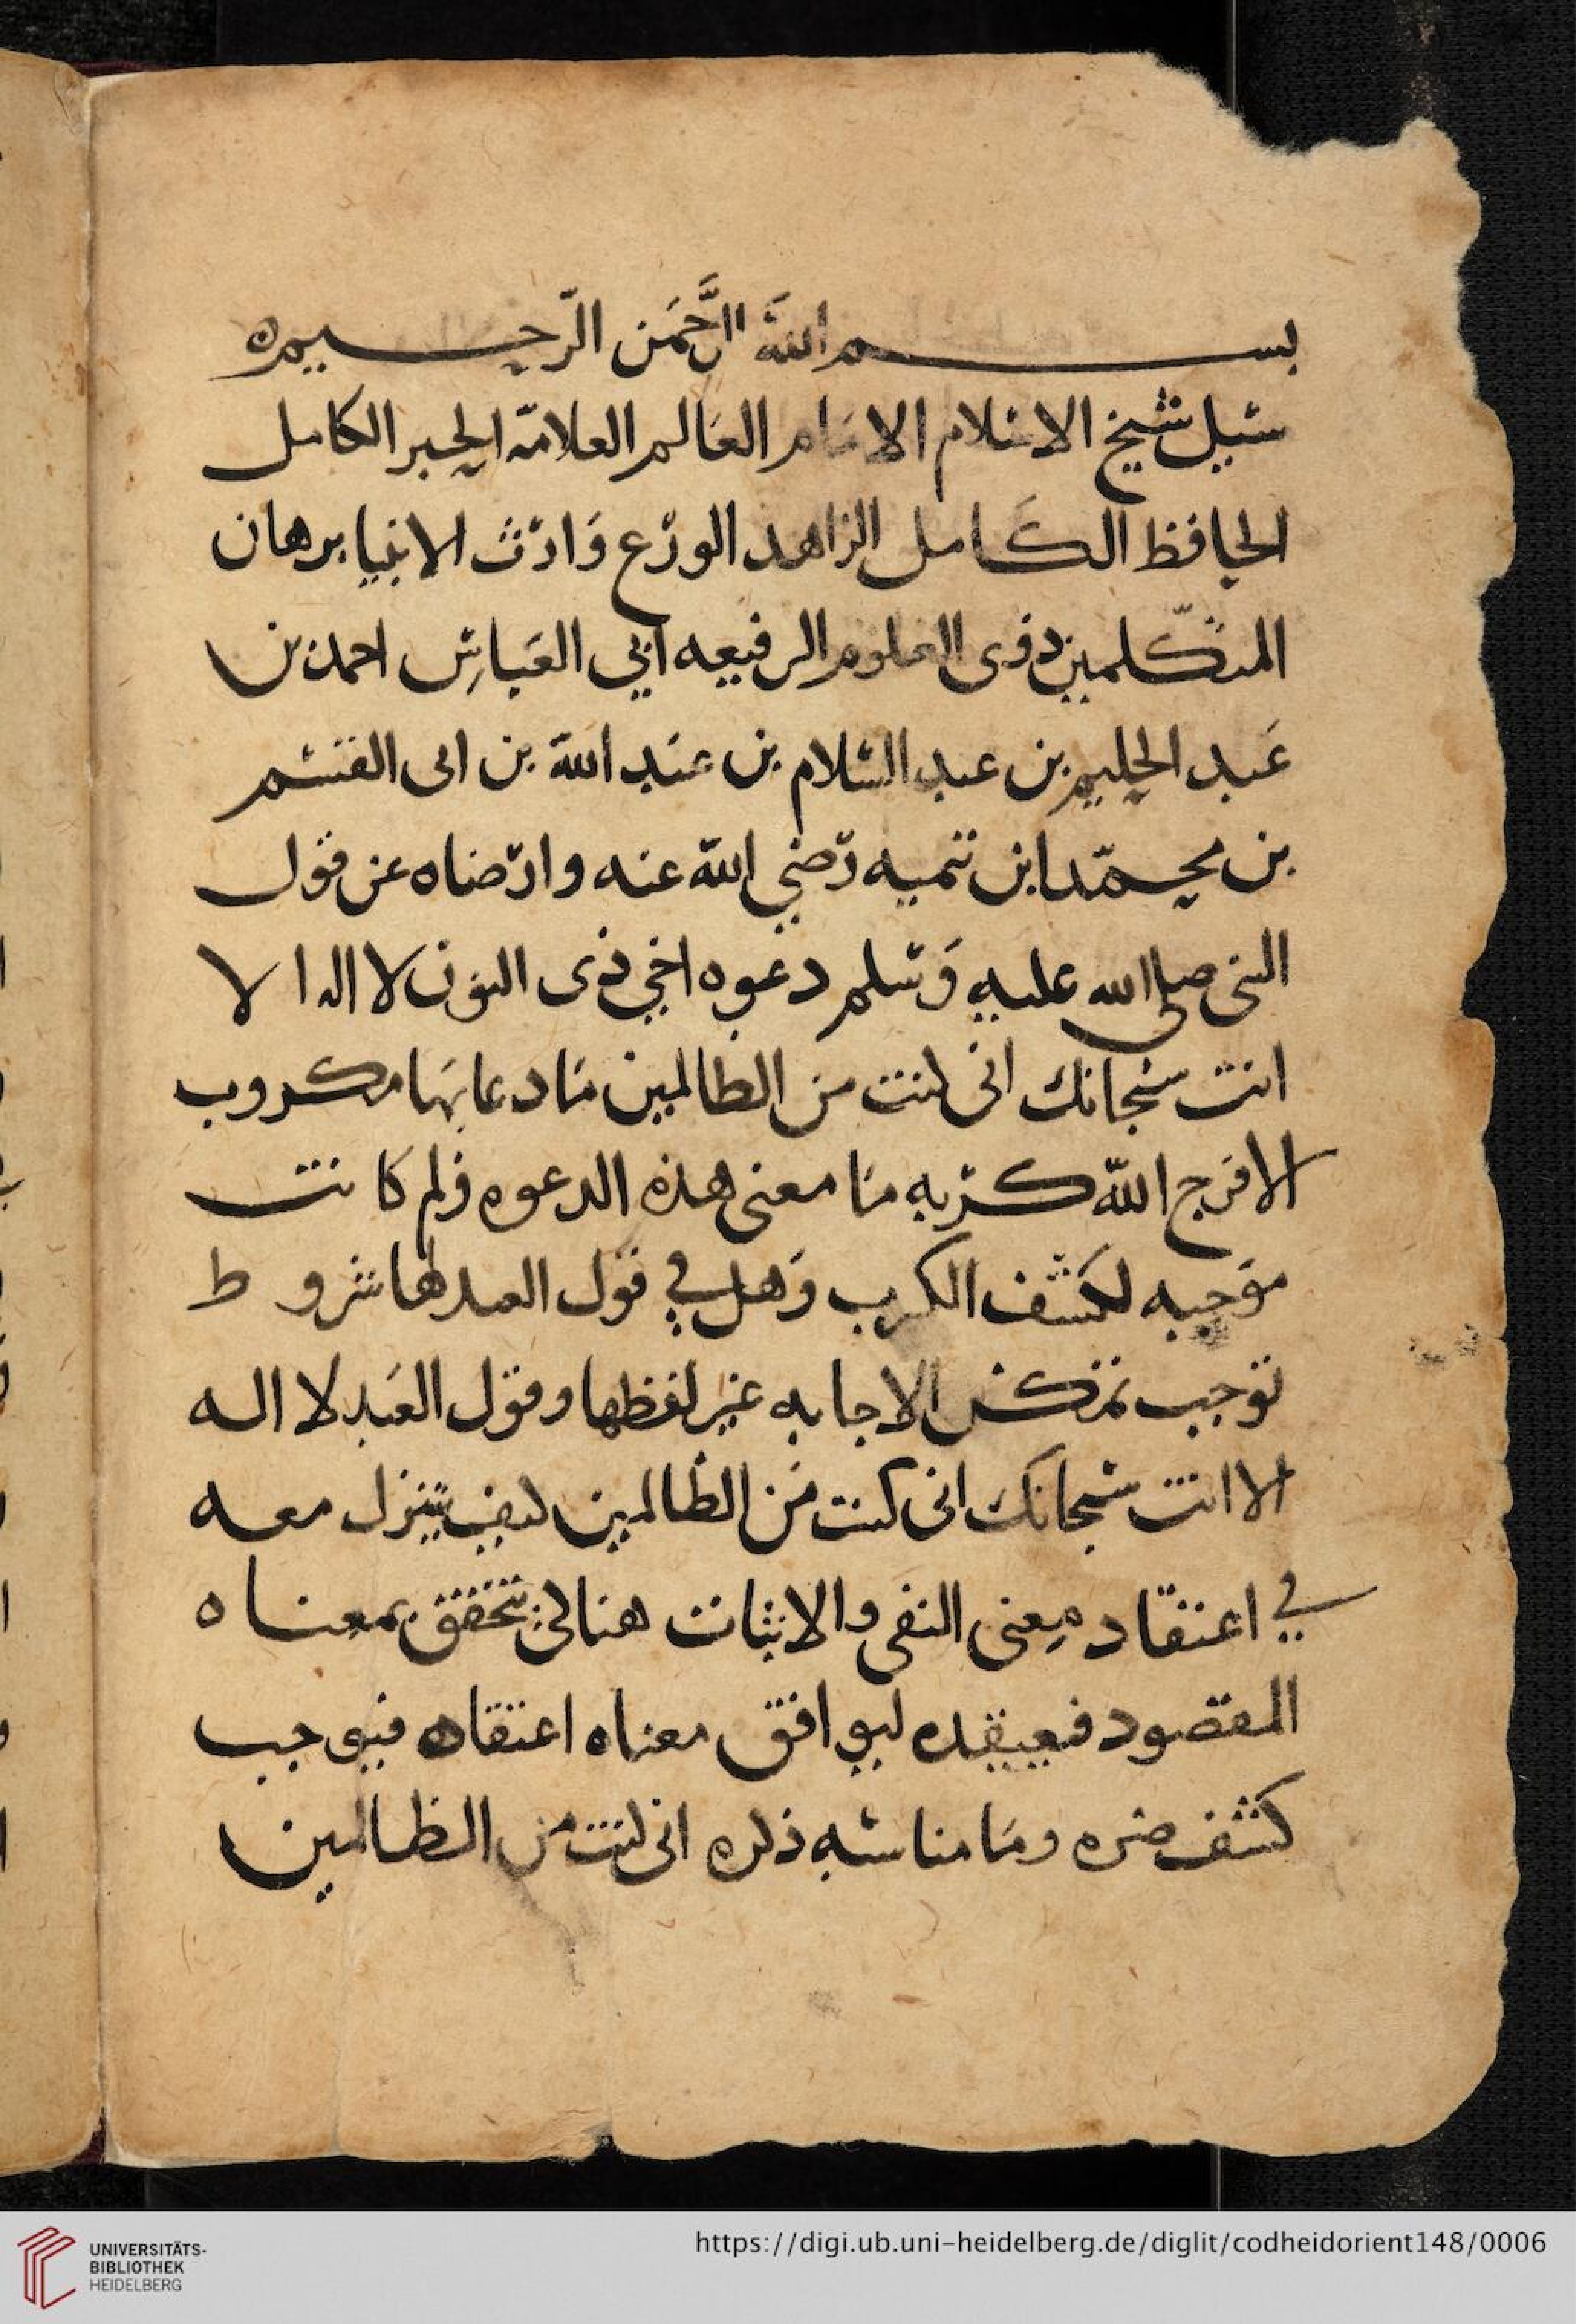 بسم الله الرحمن الرحيم ه
سيل شيخ الاسلام الامام العالم العلامة الحبر الكامل
الحافظ الكامل الزاهد الورع وارث الانبيا برهان
المتكلمين ذوى العلوم الرفيعه ابي العباس احمد بن
عبد الحليم بن عبد السلام بن عبد الله بن ابى القسم
بن محمد ابن تيميه رضي الله عنه وارضاه عن قول
النبى صلى الله عليه وسلم دعوه اخي ذى النون لا اله الا
انت سبحانك انى كنت من الظالمين ما دعا بها مكروب
الا فرج الله كربه ما معنى هذه الدعوه ولم كانت
موجبه لكشف الكرب وهل في قول العبد لها شروط
توجب الاجابه غير لفظها وقول العبد لا اله
الا انت سبحانك انى كنت من الظالمين كيف يتنزل معه
في اعتقاد معنى النفى والاثبات بمعناه
المقصود ليوافق معناه اعتقاده فيوجب
كشف ضره وما مناسبه ذكره انى كنت من الظالمين
UNIVERSITÄTS-
BIBLIOTHEK
HEIDELBERG
https://digi.ub.uni-heidelberg.de/diglit/codheidorient148/0006